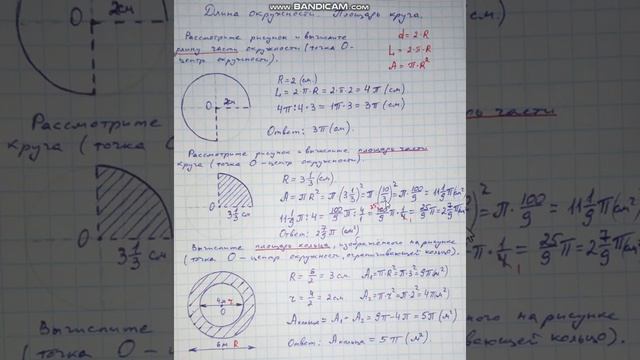 www.BANDICAM.com
Длина окружности. Площадь круга.
Рассмотрите рисунок и вычислите
длину части окружности (точка О-
центр окружности).
d = 2·R
L = 2·π·R
A = π·R²
O 2см
R = 2 (см)
L = 2·π·R = 2·π·2 = 4π (см)
4π:4·3 = 1π·3 = 3π (см)
Ответ: 3π (см).
Рассмотрите рисунок и вычислите площадь части
круга (точка О-центр окружности).
O 3 1/3 см
R = 3 1/3 (см)
A = πR² = π(3 1/3)² = π(10/3)² = π·100/9 = 11 1/9 π (см²)
11 1/9 π:4 = 100/9 π: 4/1 = 100/9 π·1/4 = 25/9 π = 2 7/9 π (см²)
Ответ: 2 7/9 π (см²)
Вычислите площадь кольца, изображенного на рисунке
(точка О-центр окружности, ограничивающей кольцо).
4м r
O
6м R
R = 6/2 = 3 см A₁=π·R²=π·3²=9π(м²)
r = 4/2 = 2см A₂=π·r²=π·2²=4π(м²)
A кольца = A₁ - A₂ = 9π-4π = 5π (м²)
Ответ: A кольца = 5π (м²).
2см
O
Рассмотрите
круга (точка О
O
3 1/3 см
Вычислите
(точка О-ц
см).
дь части
π·100/9 = 11 1/9 π (см²)
π·1/4 = 25/9 π = 2 7/9
ного на рисунке
вающей кольцо).